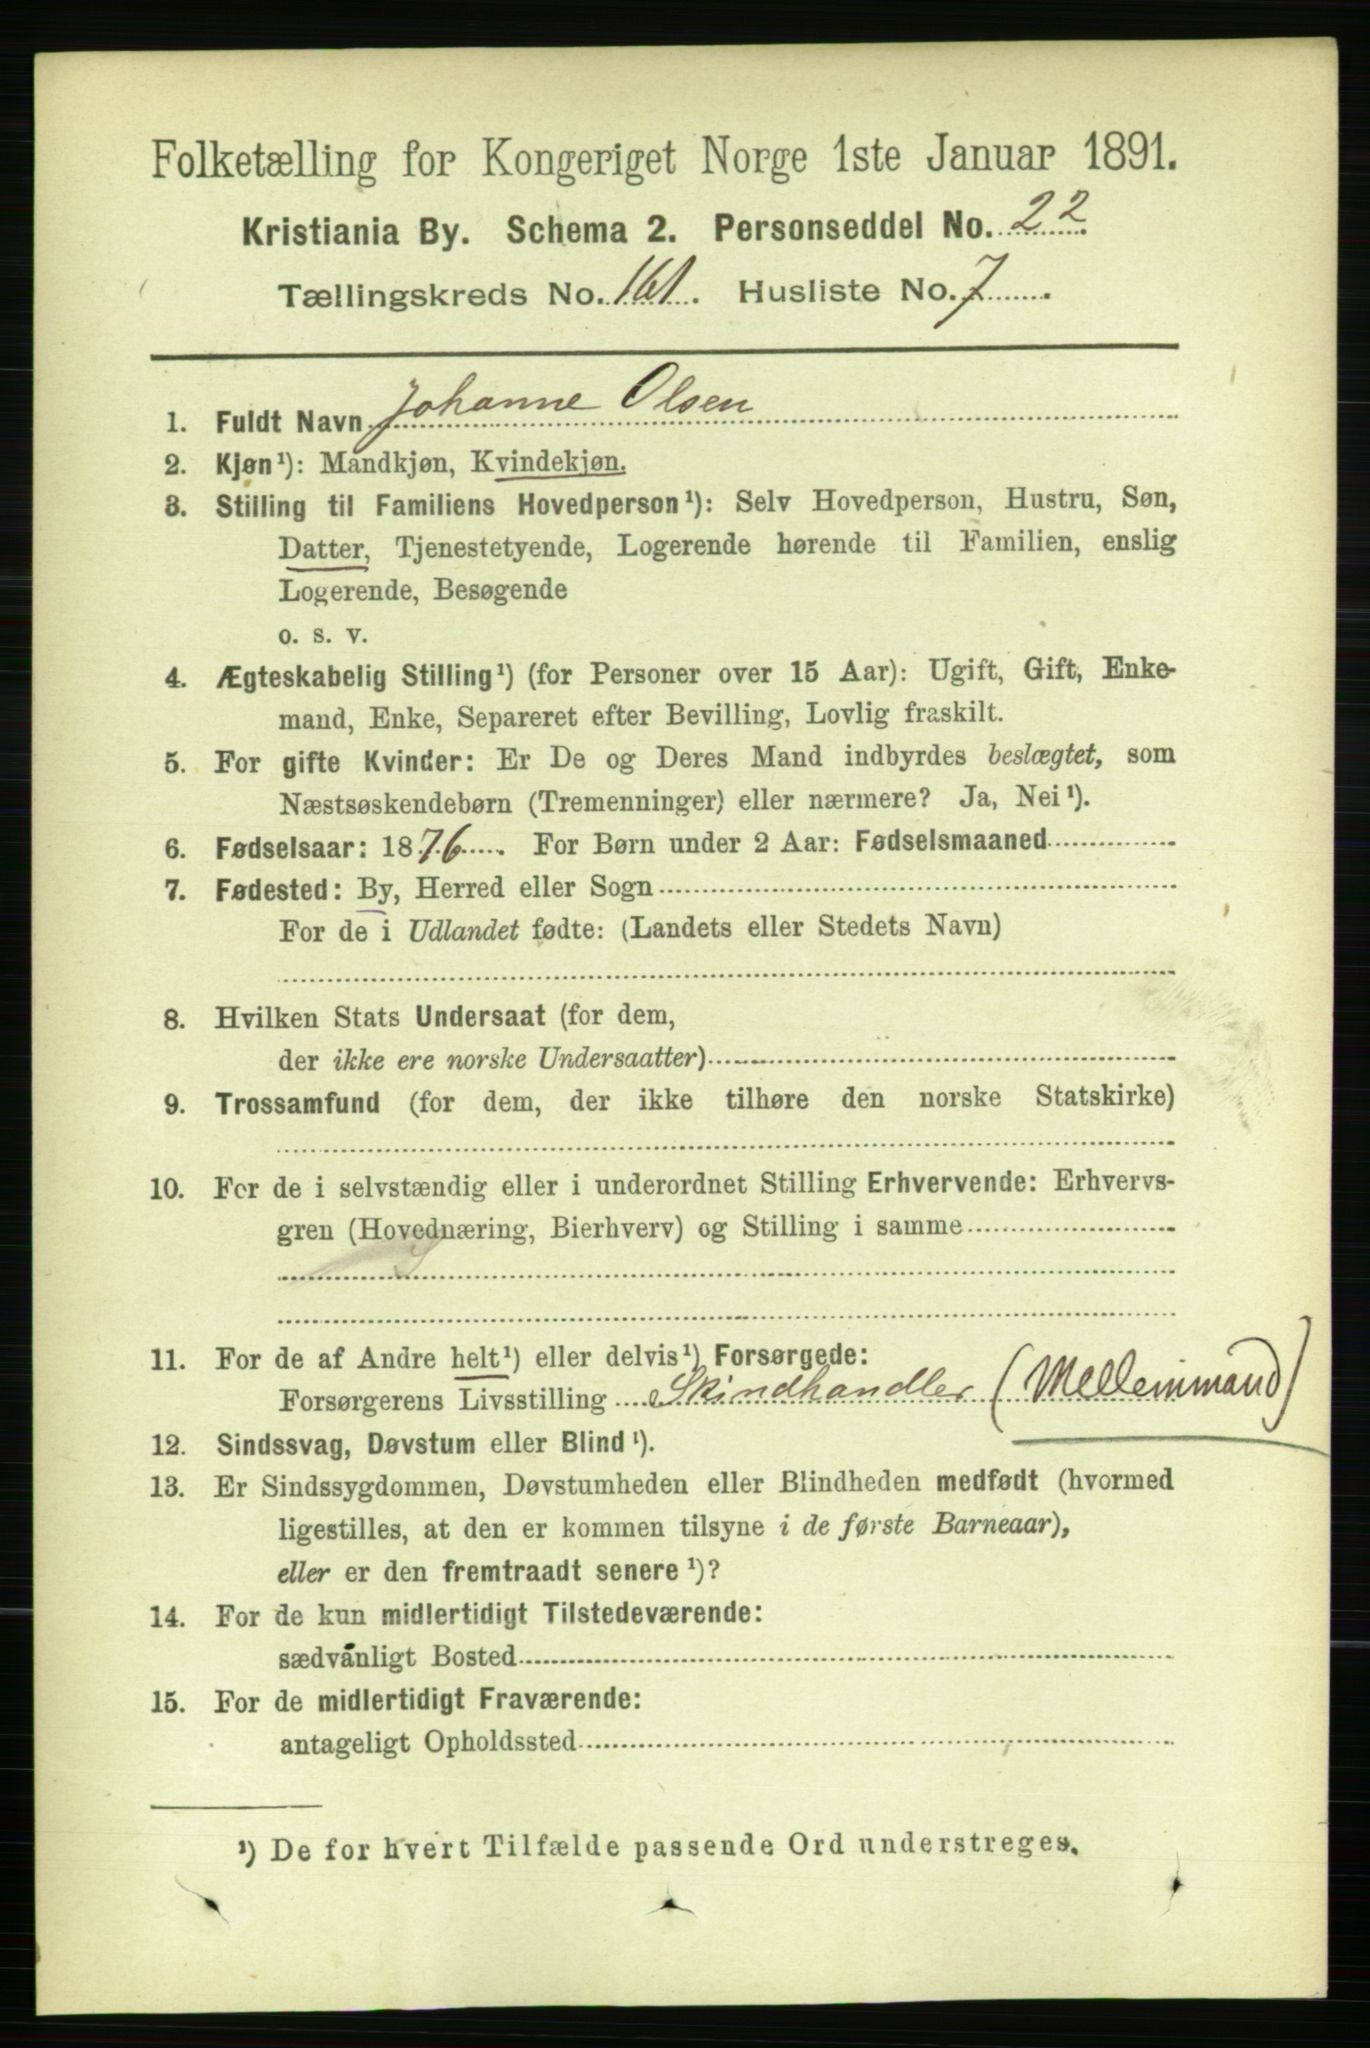 Folketælling for Kongeriget Norge 1ste Januar 1891.
Kristiania By. Schema 2. Personseddel No. 22
Tællingskreds No. 161. Husliste No. 7
1. Fuldt Navn Johanne Olsen
2. Kjøn¹): Mandkjøn, Kvindekjøn.
3. Stilling til Familiens Hovedperson¹): Selv Hovedperson, Hustru, Søn,
Datter, Tjenestetyende, Logerende hørende til Familien, enslig
Logerende, Besøgende
o. s. v.
4. Ægteskabelig Stilling¹) (for Personer over 15 Aar): Ugift, Gift, Enke-
mand, Enke, Separeret efter Bevilling, Lovlig fraskilt.
5. For gifte Kvinder: Er De og Deres Mand indbyrdes beslægtet, som
Næstsøskendebørn (Tremenninger) eller nærmere? Ja, Nei¹).
6. Fødselsaar: 1876. For Børn under 2 Aar: Fødselsmaaned
7. Fødested: By, Herred eller Sogn
For de i Udlandet fødte: (Landets eller Stedets Navn)
8. Hvilken Stats Undersaat (for dem,
der ikke ere norske Undersaatter)
9. Trossamfund (for dem, der ikke tilhøre den norske Statskirke)
10. For de i selvstændig eller i underordnet Stilling Erhvervende: Erhvervs-
gren (Hovednæring, Bierhverv) og Stilling i samme
11. For de af Andre helt¹) eller delvis¹) Forsørgede:
Forsørgerens Livsstilling Skindhandler (Mellemmand)
12. Sindssvag, Døvstum eller Blind¹).
13. Er Sindssygdommen, Døvstumheden eller Blindheden medfødt (hvormed
ligestilles, at den er kommen tilsyne i de første Barneaar),
eller er den fremtraadt senere¹)?
14. For de kun midlertidigt Tilstedeværende:
sædvanligt Bosted
15. For de midlertidigt Fraværende:
antageligt Opholdssted
¹) De for hvert Tilfælde passende Ord understreges.